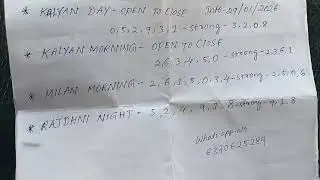 * KALYAN DAY - OPEN TO CLOSE DATE - 09/01/2026
0, 5, 2, 9, 3, 1 - strong - 3, 2, 0, 8
* KALYAN MORNING - OPEN TO CLOSE
2, 6, 3, 4, 5, 0 - strong - 2, 3, 6, 1
* MILAN MORNING - 2, 6, 3, 5, 0, 3, 4 - strong - 2, 5, 0, 6
* RAJDHNI NIGHT - 5, 2, 4, 9, 3, 8 - strong - 9, 1, 8
Whats app-No
8320625289